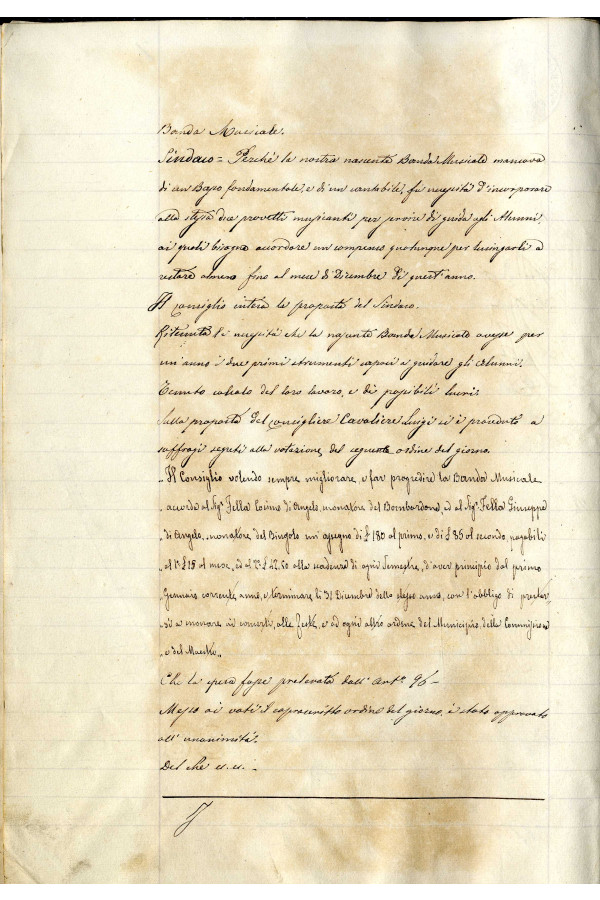 Banda Musicale.
Sindaco = Perchè la nostra nascente Banda Musicale mancava
di un Basso fondamentale, e di un cantabile, fu necessità d'incorporare
alla stessa due provetti musicanti per servire di guida agli Alunni
ai quali bisogna accordare un compenso qualunque per lusingarli a
restare almeno fino al mese di Dicembre di quest'anno.
Il Consiglio intesa la proposta del Sindaco.
Ritenuta la necessità che la nascente Banda Musicale avesse per
un'anno i due primi strumenti capaci a guidare gli alunni.
Tenuto calcolo del loro lavoro, e di possibili lucri.
Sulla proposta del Consigliere Cavaliere Luigi si è proceduto a
suffragi segreti alla votazione del seguente ordine del giorno.
"Il Consiglio volendo sempre migliorare, e far progredire la Banda Musicale
" accorda al Sigr. Fella Cosimo di Angelo, suonatore del Bombardone, ed al Sigr. Fella Giuseppe
" di Angelo, suonatore del un'assegno di £ 180 al primo, e di £ 85 al secondo, pagabili
" al 1° £ 15 al mese, ed al 2° £ 42.50 alla scadenza di ogni Semestre, d'aver principio dal primo
Gennaio corrente anno, e terminare li 31 Dicembre dello stesso anno, con l'obbligo di prestar
si a suonare ai concerti, alle feste, e ad ogni altro ordine del Municipio, della Commissione
" e del Maestro "
Che la spesa fosse prelevata dall'Art.° 96 –
Messo ai voti il soprascritto ordine del giorno, è stato approvato
all'unanimità.
Del che